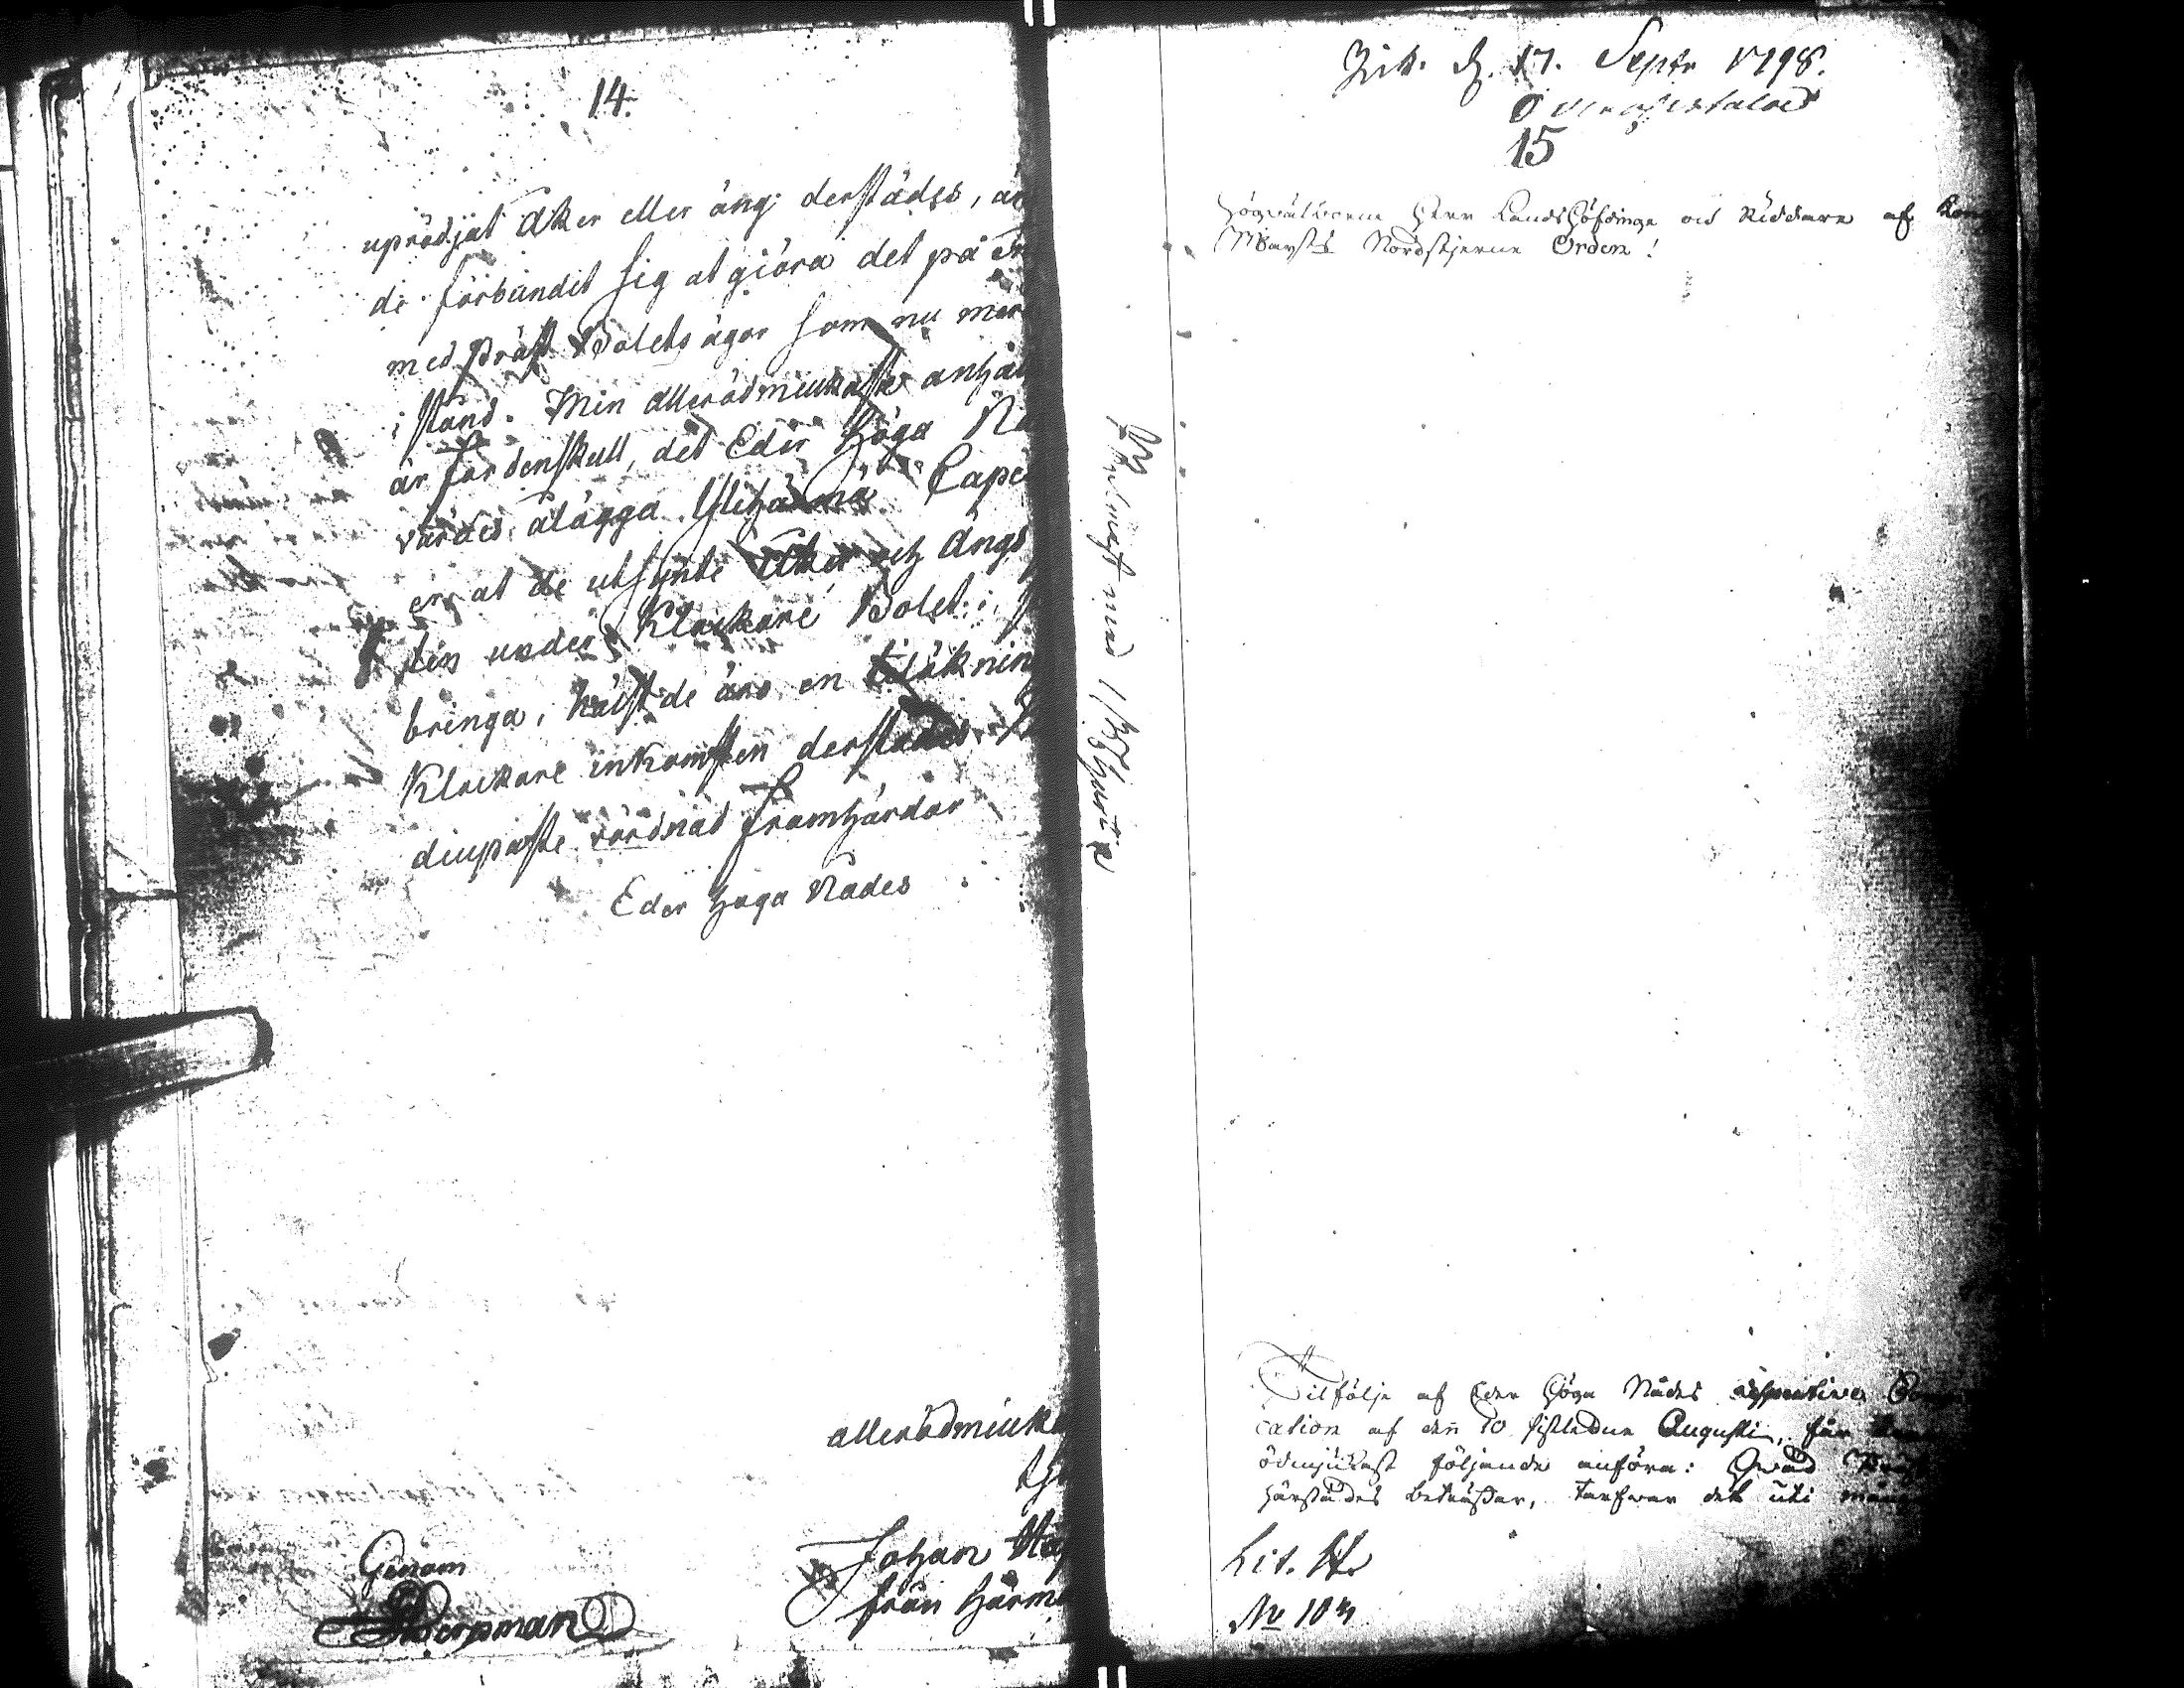 14.
uprödjat Åker eller äng derstädes, än
de förbundit sig at giöra det på en
med Präst Bolets ägor som nu mera
i stånd. Min allerödmiukaste anhål
är fördenskull, det Eder Höga Nå
värdes ålägga Ylihärmä Capel
er at de utsynte Åker och Ängs
ten under Klockare Bolet i
bringa, hälst de äro en tilökning
Klockare inkomsten derstädes.
diupaste vördnad framhärdar
Eder Höga Nådes
allerödmiuka
tje
Johan
från Härmä
Genom
Bergman
d. 17. Septr 1798.
15
Högvälborne Herr Landshöfdinge och Riddare af Kongl
Mayts Nordstjerne Orden!
Tilfölje af Eder Höga Nådes respective
cation af den 10 sistledne Augusti, får
ödmjukast följande anföra: Hvad
härstädes beträffar, tarfvar det uti
Lit.
No 103